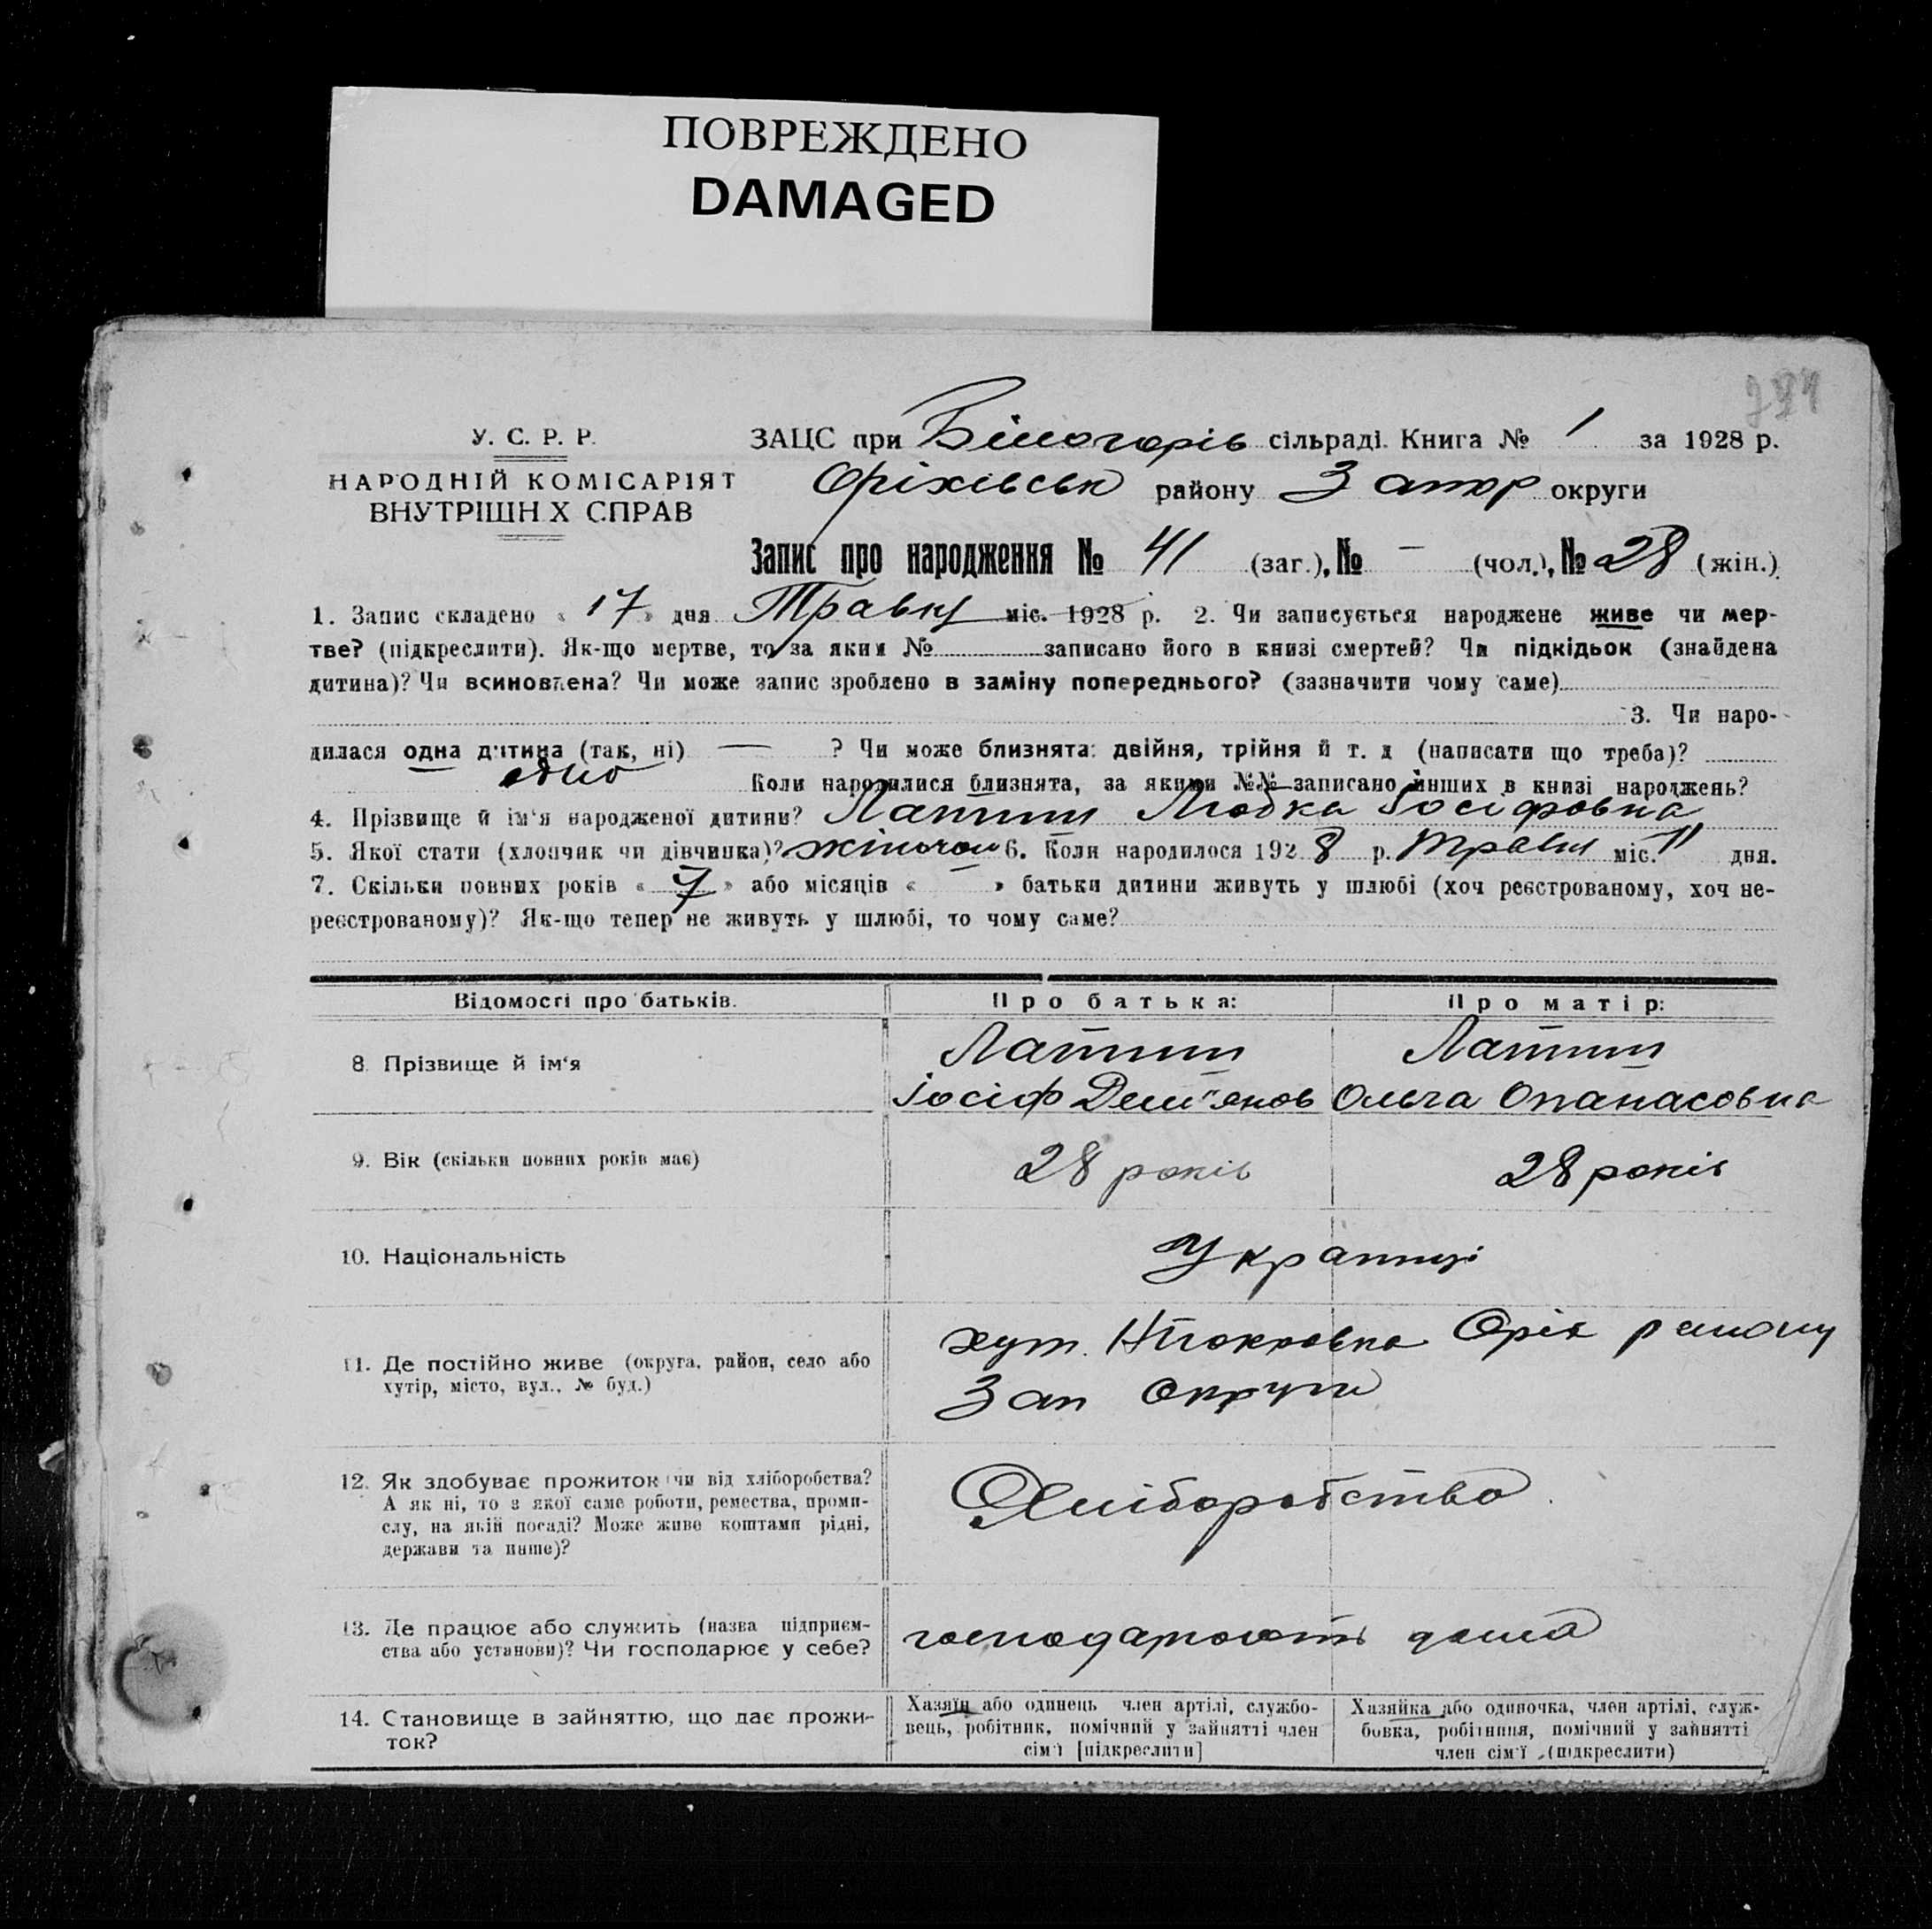 ПОВРЕЖДЕНО
DAMAGED
У. С. Р. Р.
НАРОДНІЙ КОМІСАРІЯТ
ВНУТРІШН Х СПРАВ
ЗАЦС при Білогорів сільраді. Книга № 1 за 1928 р.
Оріхівськ району Запор округи
Запис про народження № 41 (заг.), № — (чол.), № 28 (жін.)
1. Запис складено « 17 » дня Травня міс. 1928 р. 2. Чи записується народжене живе чи мер-
тве? (підкреслити). Як-що мертве, то за яким № записано його в книзі смертей? Чи підкідьок (знайдена
дитина)? Чи всиновлена? Чи може запис зроблено в заміну попереднього? (зазначити чому саме)
3. Чи наро-
дилася одна дитина (так, ні) — ? Чи може близнята: двійня, трійня й т. д (написати що треба)?
одно Коли народилися близнята, за якими №№ записано инших в книзі народжень?
4. Прізвище й ім'я народженої дитини? Латиш Любка Іосіфовна
5. Якої стати (хлопчик чи дівчинка)? жіночои 6. Коли народилося 1928 р. Травня міс. 11 дня.
7. Скільки повних років « 7 » або місяців « — » батьки дитини живуть у шлюбі (хоч реєстрованому, хоч не-
реєстрованому)? Як-що тепер не живуть у шлюбі, то чому саме?
Відомості про батьків. Про батька: Про матір:
8 Прізвище й ім'я Латиш Латиш
Іосіф Дем'янов Ольга Опанасовна
9. Вік (скільки повних років має) 28 років 28 років
10. Національність Українці
11. Де постійно живе (округа, район, село або хут. Покровка Оріх району
хутір, місто, вул., № буд.) Зап Округи
12. Як здобуває прожиток (чи від хліборобства? Хліборобство
А як ні, то з якої саме роботи, ремества, проми-
слу, на якій посаді? Може живе коштами рідні,
держави та инше)?
13. Де працює або служить (назва підприєм-
ства або установи)? Чи господарює у себе? господарюють дома
14. Становище в зайняттю, що дає прожи-
ток?
Хазяїн або одинець член артілі, службо-
вець, робітник, помічний у зайнятті член
сім'ї [підкреслити]
Хазяйка або одиночка, член артілі, служ-
бовка, робітниця, помічний у зайнятті
член сім'ї (підкреслити)